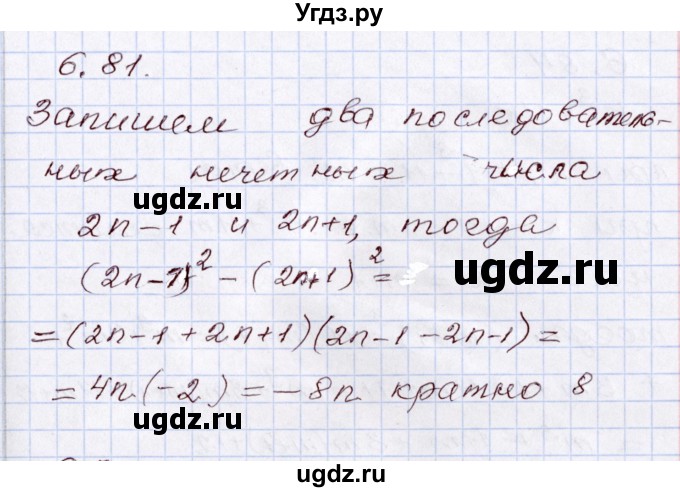 Угдз.ру
6.81.
Запишем два последователь-
ных нечетных числа
2n-1 и 2n+1, тогда
(2n-1)² - (2n+1)² =
= (2n-1+2n+1)(2n-1-2n-1) =
= 4n(-2) = -8n кратно 8
ugdz.ru
ugdz.ru
ugdz.ru
ugdz.ru
ugdz.ru
ugdz.ru